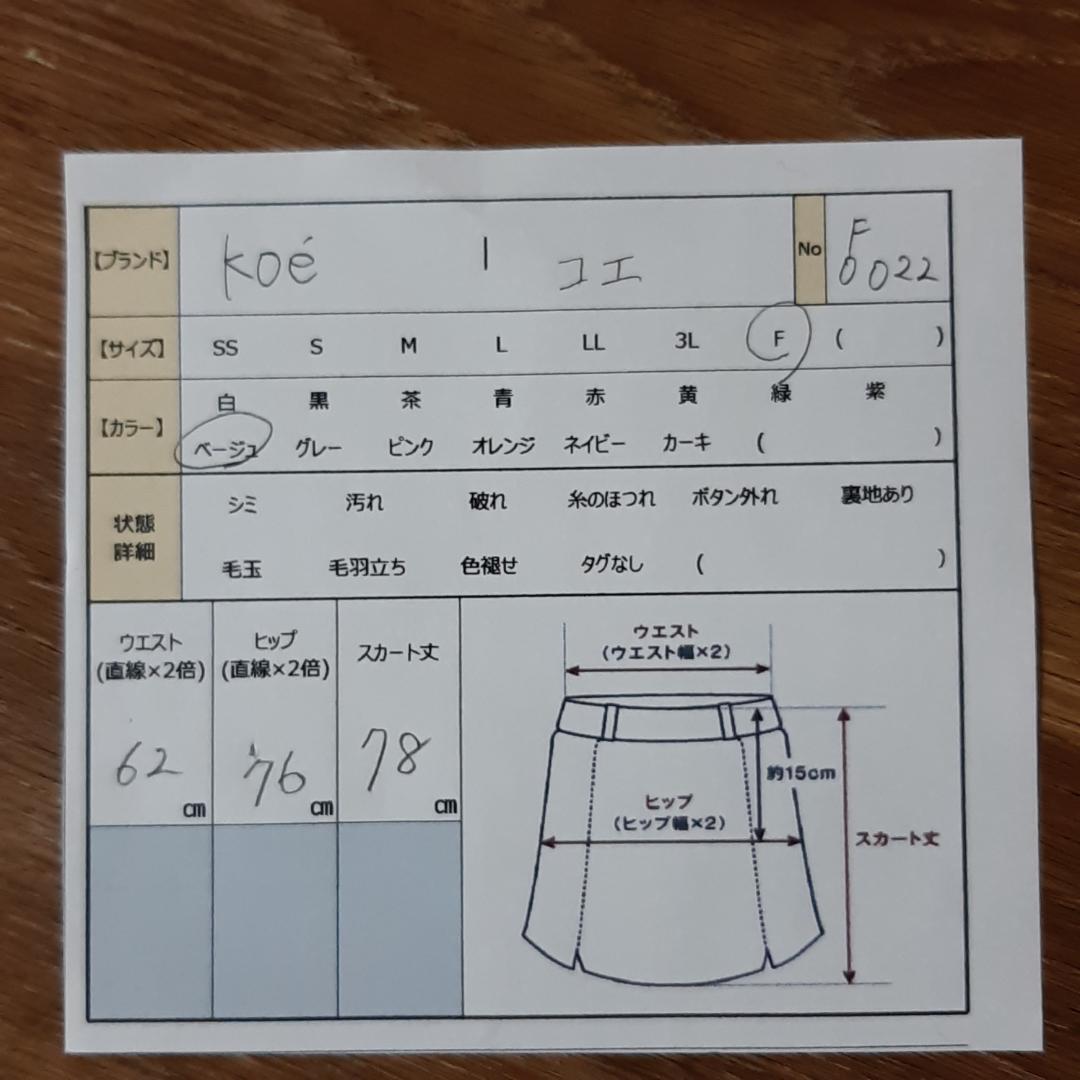 【ブランド】 koé | コエ No F 0022
【サイズ】 SS S M L LL 3L F ( )
【カラー】 白 黒 茶 青 赤 黄 緑 紫
ベージュ グレー ピンク オレンジ ネイビー カーキ ( )
状態
詳細
シミ 汚れ 破れ 糸のほつれ ボタン外れ 裏地あり
毛玉 毛羽立ち 色褪せ タグなし ( )
ウエスト
(直線×2倍)
62 cm
ヒップ
(直線×2倍)
76 cm
スカート丈
78 cm
ウエスト
(ウエスト幅×2)
約15cm
ヒップ
(ヒップ幅×2)
スカート丈